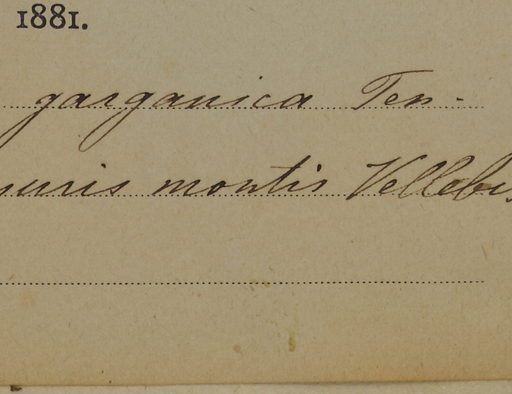 1881.
garganica Ten.
montis Vellebi